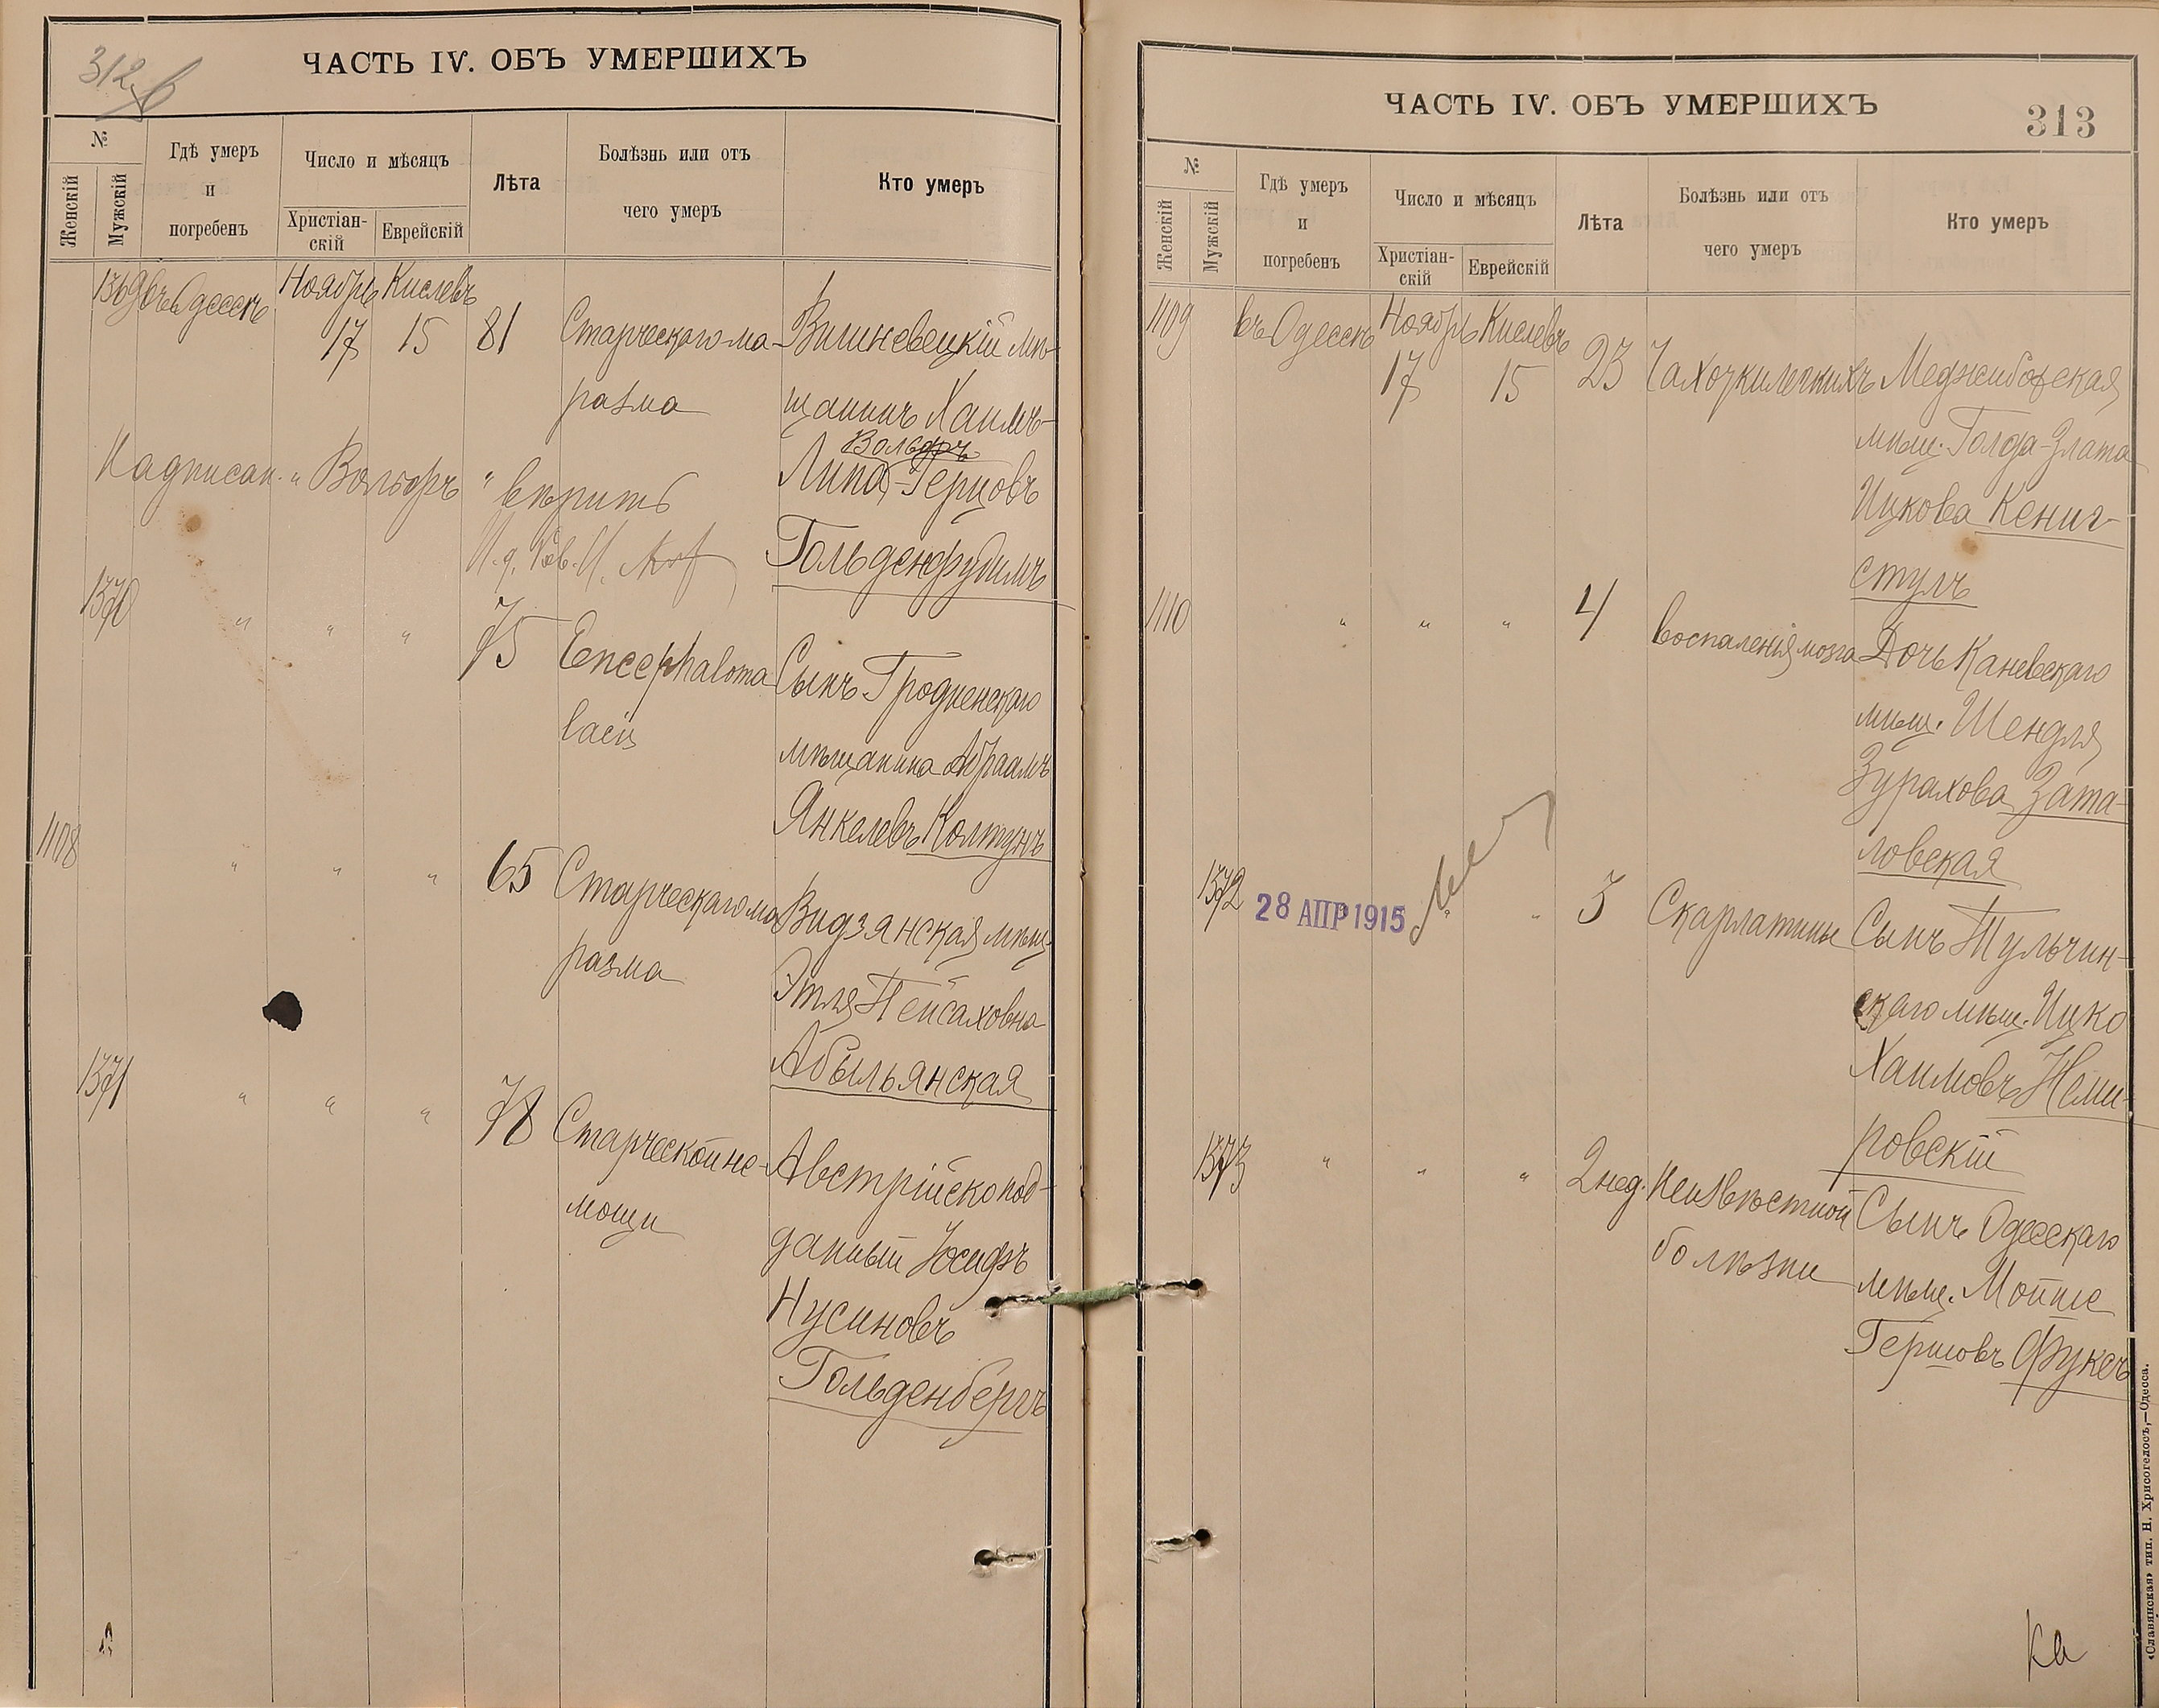 312
ЧАСТЬ IV. ОБЪ УМЕРШИХЪ
№
Женскій
Мужскій
Гдѣ умеръ
и
погребенъ
Число и мѣсяцъ
Христіан-
скій
Еврейскій
Лѣта
Болѣзнь или отъ
чего умеръ
Кто умеръ
1369 въ Одессѣ Ноябрь Кислевъ
17 15 81 Старческаго ма- Вишневецкій мѣ-
разма щанинъ Хаимъ-
Вольфъ
Липа-Герцовъ
Надписан. "Вольфъ" вѣрить
Гольденфудимъ
И. д. Рав.
1370 " " " 75 Encephaloma Сынъ Гродненскаго
lacis мѣщанина Абраамъ
Янкелевъ Колтунъ
1108 " " " 65 Старческаго ма Видзянская мѣщ.
разма Этля Пейсаховна
Абыльянская
1371 " " " 78 Старческой не- Австрійско под-
мощи данный Іосифъ
Нусиновъ
Гольденбергъ
ЧАСТЬ IV. ОБЪ УМЕРШИХЪ
313
№
Женскій
Мужскій
Гдѣ умеръ
и
погребенъ
Число и мѣсяцъ
Христіан-
скій
Еврейскій
Лѣта
Болѣзнь или отъ
чего умеръ
Кто умеръ
1109 въ Одессѣ Ноябрь Кислевъ
17 15 23 Чахотки легкихъ Меджибожская
мѣщ. Голда-Злата
Ицкова Кениг-
стулъ
1110 " " " 4 воспаленія мозга Дочь Каневскаго
мѣщ. Шендля
Зурахова Зата-
ловская
1372 28 АПР 1915 " " 3 Скарлатины Сынъ Тульчин-
скаго мѣщ. Ицко
Хаимовъ Неми-
ровскій
1373 " " " 2 нед. Неизвѣстной Сынъ Одесскаго
болѣзни мѣщ. Мойше
Гершовъ Фуксъ
«Славянская» тип. Н. Хрисогелосъ,—Одесса.